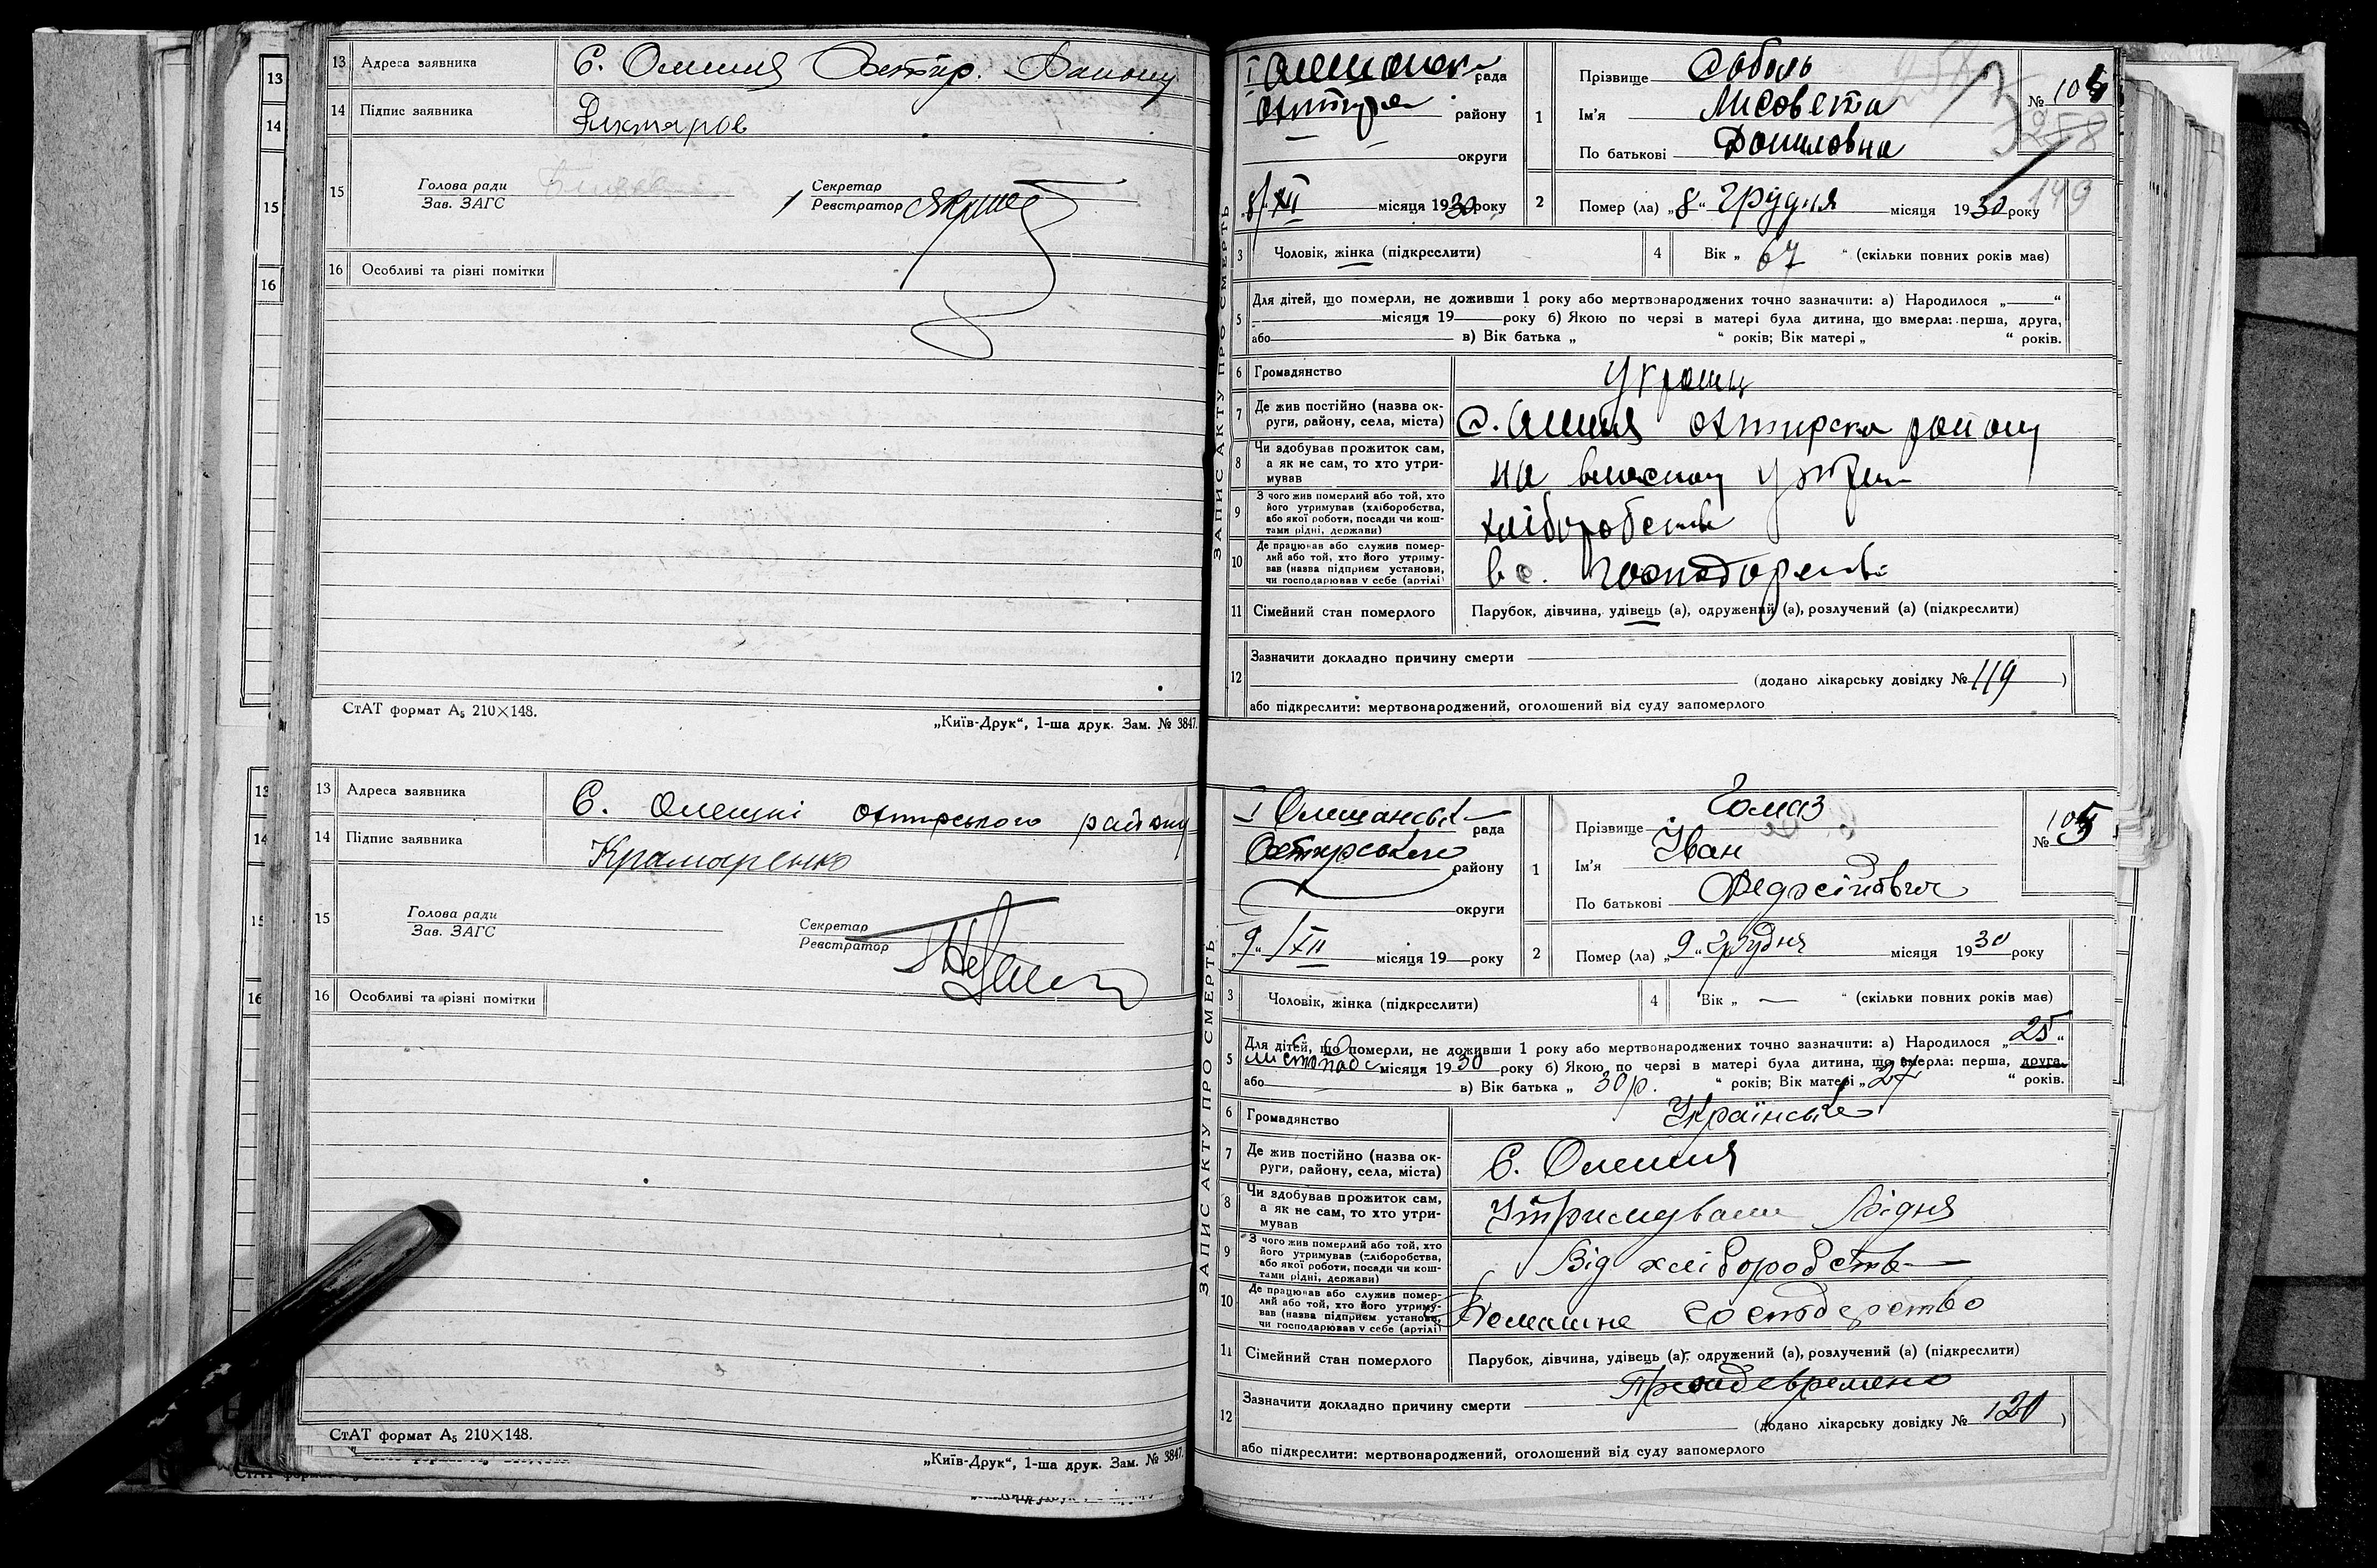 13 Адреса заявника С. Олешня Охтир. Району
14 Підпис заявника
15 Голова ради
Зав. ЗАГС
Секретар
Реєстратор
16 Особливі та різні помітки
СтАТ формат А₅ 210×148.
„Київ-Друк“, 1-ша друк. Зам. № 3847.
13 Адреса заявника С. Олешні охтирського району
14 Підпис заявника Крамаренко
15 Голова ради
Зав. ЗАГС
Секретар
Реєстратор
16 Особливі та різні помітки
СтАТ формат А₅ 210×148.
„Київ-Друк“, 1-ша друк. Зам. № 3847.
ЗАПИС АКТУ ПРО СМЕРТЬ
рада
району
округи
„8“ XII місяця 1930 року
1 Прізвище Соболь
Ім'я Лисовета
По батькові Даниловна
№ 104
258
149
2 Помер (ла) „8“ грудня місяця 1930 року
3 Чоловік, жінка (підкреслити)
4 Вік „ 67 “ (скільки повних років має)
5 Для дітей, що померли, не доживши 1 року або мертвонароджених точно зазначити: а) Народилося „ “
місяця 19 року б) Якою по черзі в матері була дитина, що вмерла: перша, друга,
або в) Вік батька „ “ років; Вік матері „ “ років.
6 Громадянство Украінц
7 Де жив постійно (назва округи, району, села, міста) с. Олешня охтирска району
8 Чи здобував прожиток сам,
а як не сам, то хто утримував
на власному
9 З чого жив померлий або той, хто
його утримував (хліборобства,
або якої роботи, посади чи коштами рідні, держави)
хліборобства
10 Де працював або служив померлий або той, хто його утримував (назва підприєм установи,
чи господарював у себе (артілі)
в с. господарстві
11 Сімейний стан померлого Парубок, дівчина, удівець (а), одружений (а), розлучений (а) (підкреслити)
12 Зазначити докладно причину смерти
(додано лікарську довідку № 119 )
або підкреслити: мертвонароджений, оголошений від суду запомерлого
ЗАПИС АКТУ ПРО СМЕРТЬ
I Олешанська рада
Охтирського району
округи
„9“ XII місяця 19 року
1 Прізвище Гомаз
Ім'я Іван
По батькові
№ 105
2 Помер (ла) „9“ грудня місяця 1930 року
3 Чоловік, жінка (підкреслити)
4 Вік „ — “ (скільки повних років має)
5 Для дітей, що померли, не доживши 1 року або мертвонароджених точно зазначити: а) Народилося „25“
листопада місяця 1930 року б) Якою по черзі в матері була дитина, що вмерла: перша, друга,
або в) Вік батька „ 30 р. “ років; Вік матері „ 27 “ років.
6 Громадянство Українське
7 Де жив постійно (назва округи, району, села, міста) С. Олешня
8 Чи здобував прожиток сам,
а як не сам, то хто утримував
Утримували Рідня
9 З чого жив померлий або той, хто
його утримував (хліборобства,
або якої роботи, посади чи коштами рідні, держави)
Від хліборобства
10 Де працював або служив померлий або той, хто його утримував (назва підприєм установи,
чи господарював у себе (артілі)
Домашне господарство
11 Сімейний стан померлого Парубок, дівчина, удівець (а), одружений (а), розлучений (а) (підкреслити)
12 Зазначити докладно причину смерти
(додано лікарську довідку № 120 )
або підкреслити: мертвонароджений, оголошений від суду запомерлого